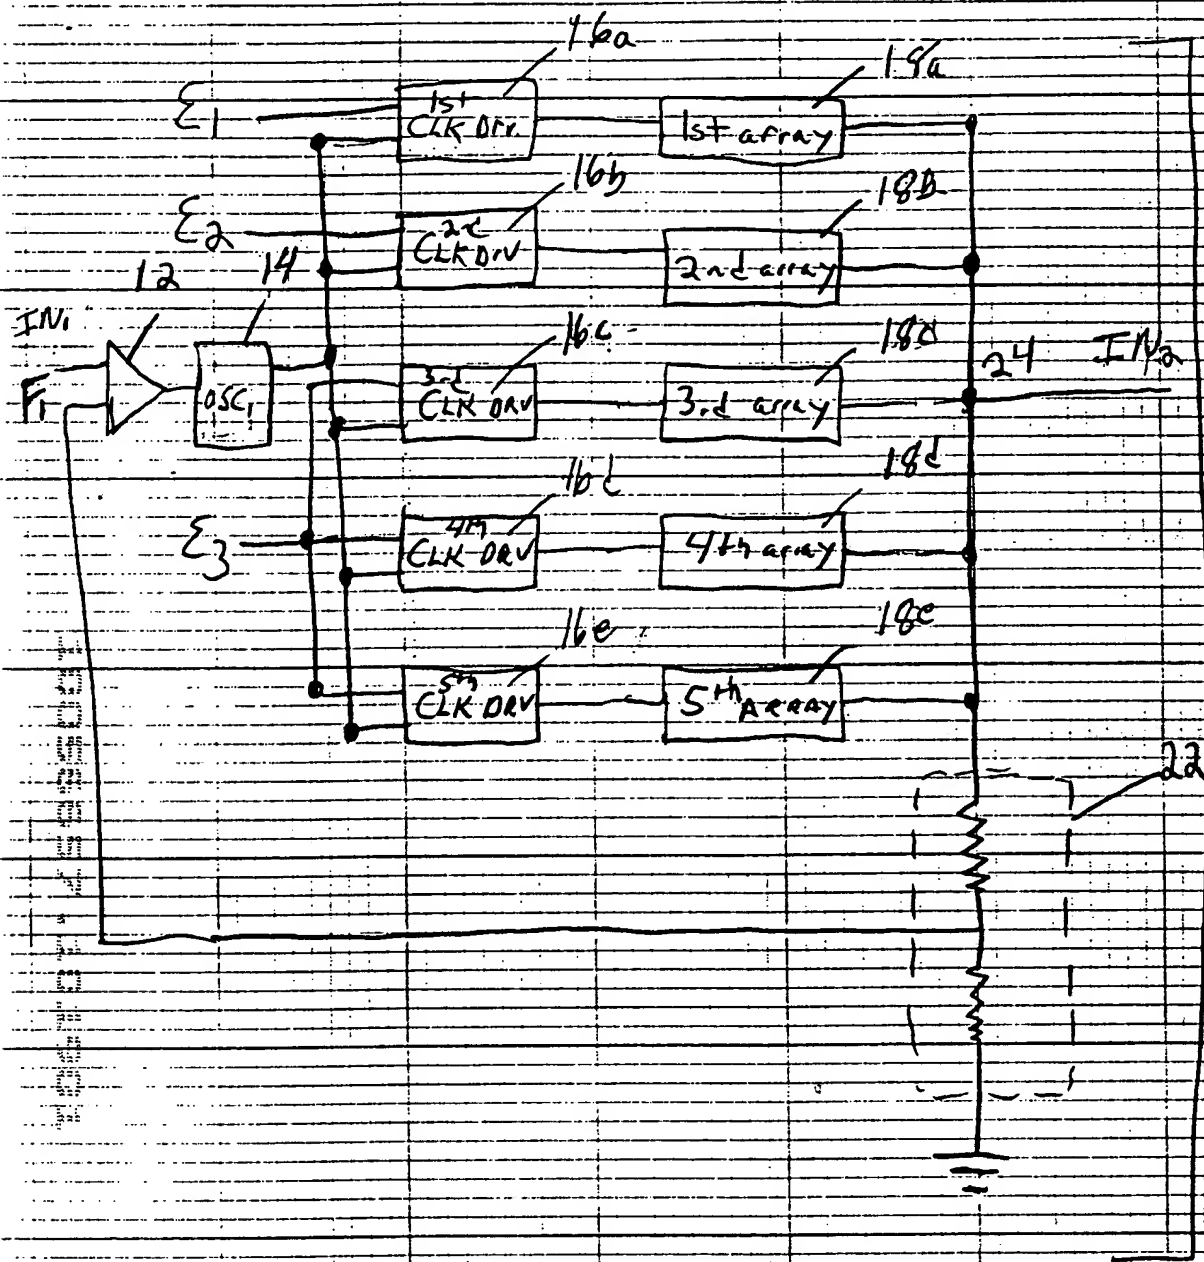 16a
18a
ε1
1st
CLK Drv.
1st array
16b
18B
ε2
2d
CLK Drv
2nd array
12
14
IN1
16c
18c
24
IN2
F1
OSC1
3rd
CLK DRV
3rd array
16d
18d
ε3
4th
CLK DRV
4th array
16e
18e
5th
CLK DRV
5th ARRAY
22